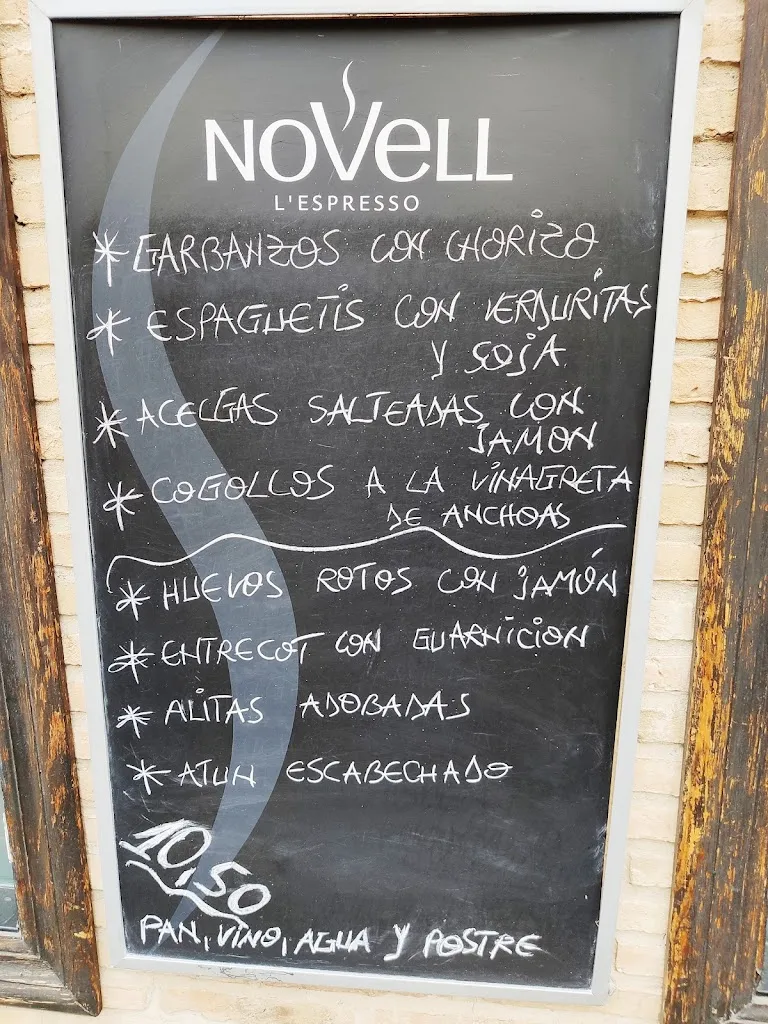 NOVELL
L'ESPRESSO
* GARBANZOS CON CHORIZO
* ESPAGUETIS CON VERDURITAS
Y SOJA
* ACELGAS SALTEADAS CON
JAMON
* COGOLLOS A LA VINAGRETA
DE ANCHOAS
* HUEVOS ROTOS CON JAMÓN
* ENTRECOT CON GUARNICION
* ALITAS ADOBADAS
* ATUN ESCABECHADO
10,50
PAN, VINO, AGUA Y POSTRE